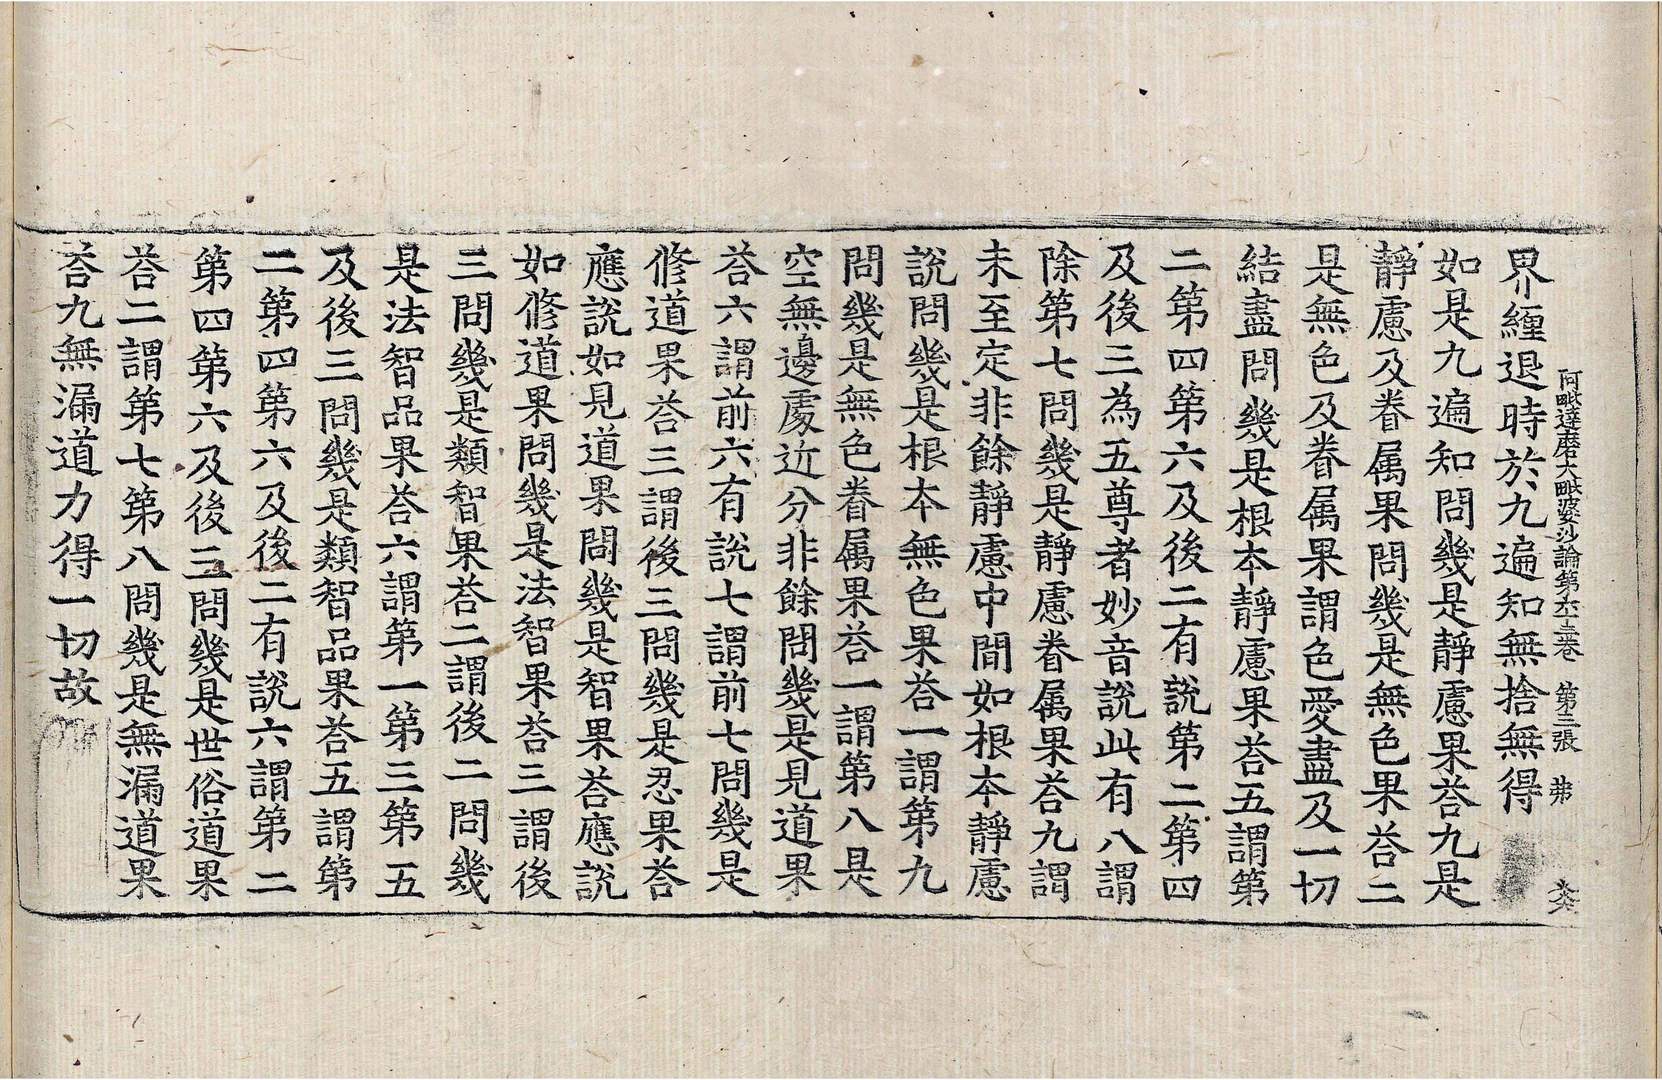 阿毗達磨大毗婆沙論第六十三卷 第三張 弗
界纏退時於九遍知無捨無得
如是九遍知問幾是靜慮果荅九是
靜慮及眷属果問幾是無色果荅二
是無色及眷属果謂色愛盡及一切
結盡問幾是根本靜慮果荅五謂第
二第四第六及後二有說第二第四
及後三為五尊者妙音說此有八謂
除第七問幾是靜慮眷属果荅九謂
未至定非餘靜慮中間如根本靜慮
說問幾是根本無色果荅一謂第九
問幾是無色眷属果荅一謂第八是
空無邊處近分非餘問幾是見道果
荅六謂前六有說七謂前七問幾是
修道果荅三謂後三問幾是忍果荅
應說如見道果問幾是智果荅應說
如修道果問幾是法智果荅三謂後
三問幾是類智果荅二謂後二問幾
是法智品果荅六謂第一第三第五
及後三問幾是類智品果荅五謂第
二第四第六及後二有說六謂第二
第四第六及後三問幾是世俗道果
荅二謂第七第八問幾是無漏道果
荅九無漏道力得一切故